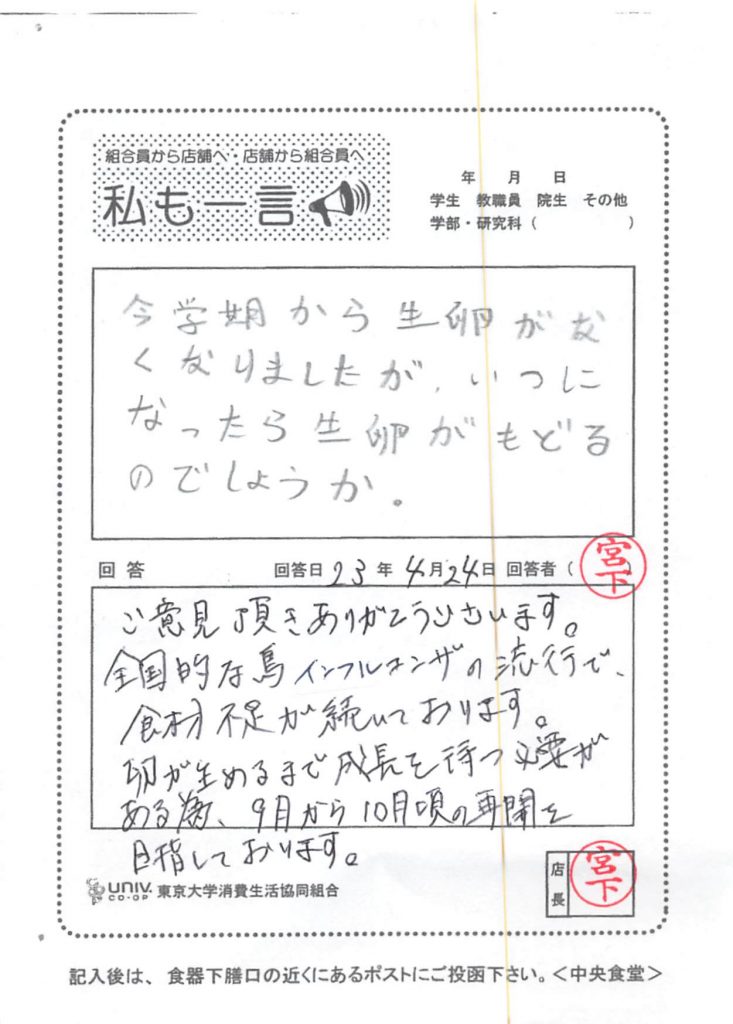 組合員から店舗へ・店舗から組合員へ
私も一言
年 月 日
学生 教職員 院生 その他
学部・研究科( )
今学期から生卵がな
くなりましたが、いつに
なったら生卵がもどる
のでしょうか。
回答 回答日 23年 4月24日 回答者( 宮下
ご意見頂きありがとうございます。
全国的な鳥インフルエンザの流行で、
食材不足が続いております。
卵が生めるまで成長を待つ必要が
ある為、9月から10月頃の再開を
目指しております。
UNIV. CO-OP 東京大学消費生活協同組合
店長 宮下
記入後は、食器下膳口の近くにあるポストにご投函下さい。<中央食堂>